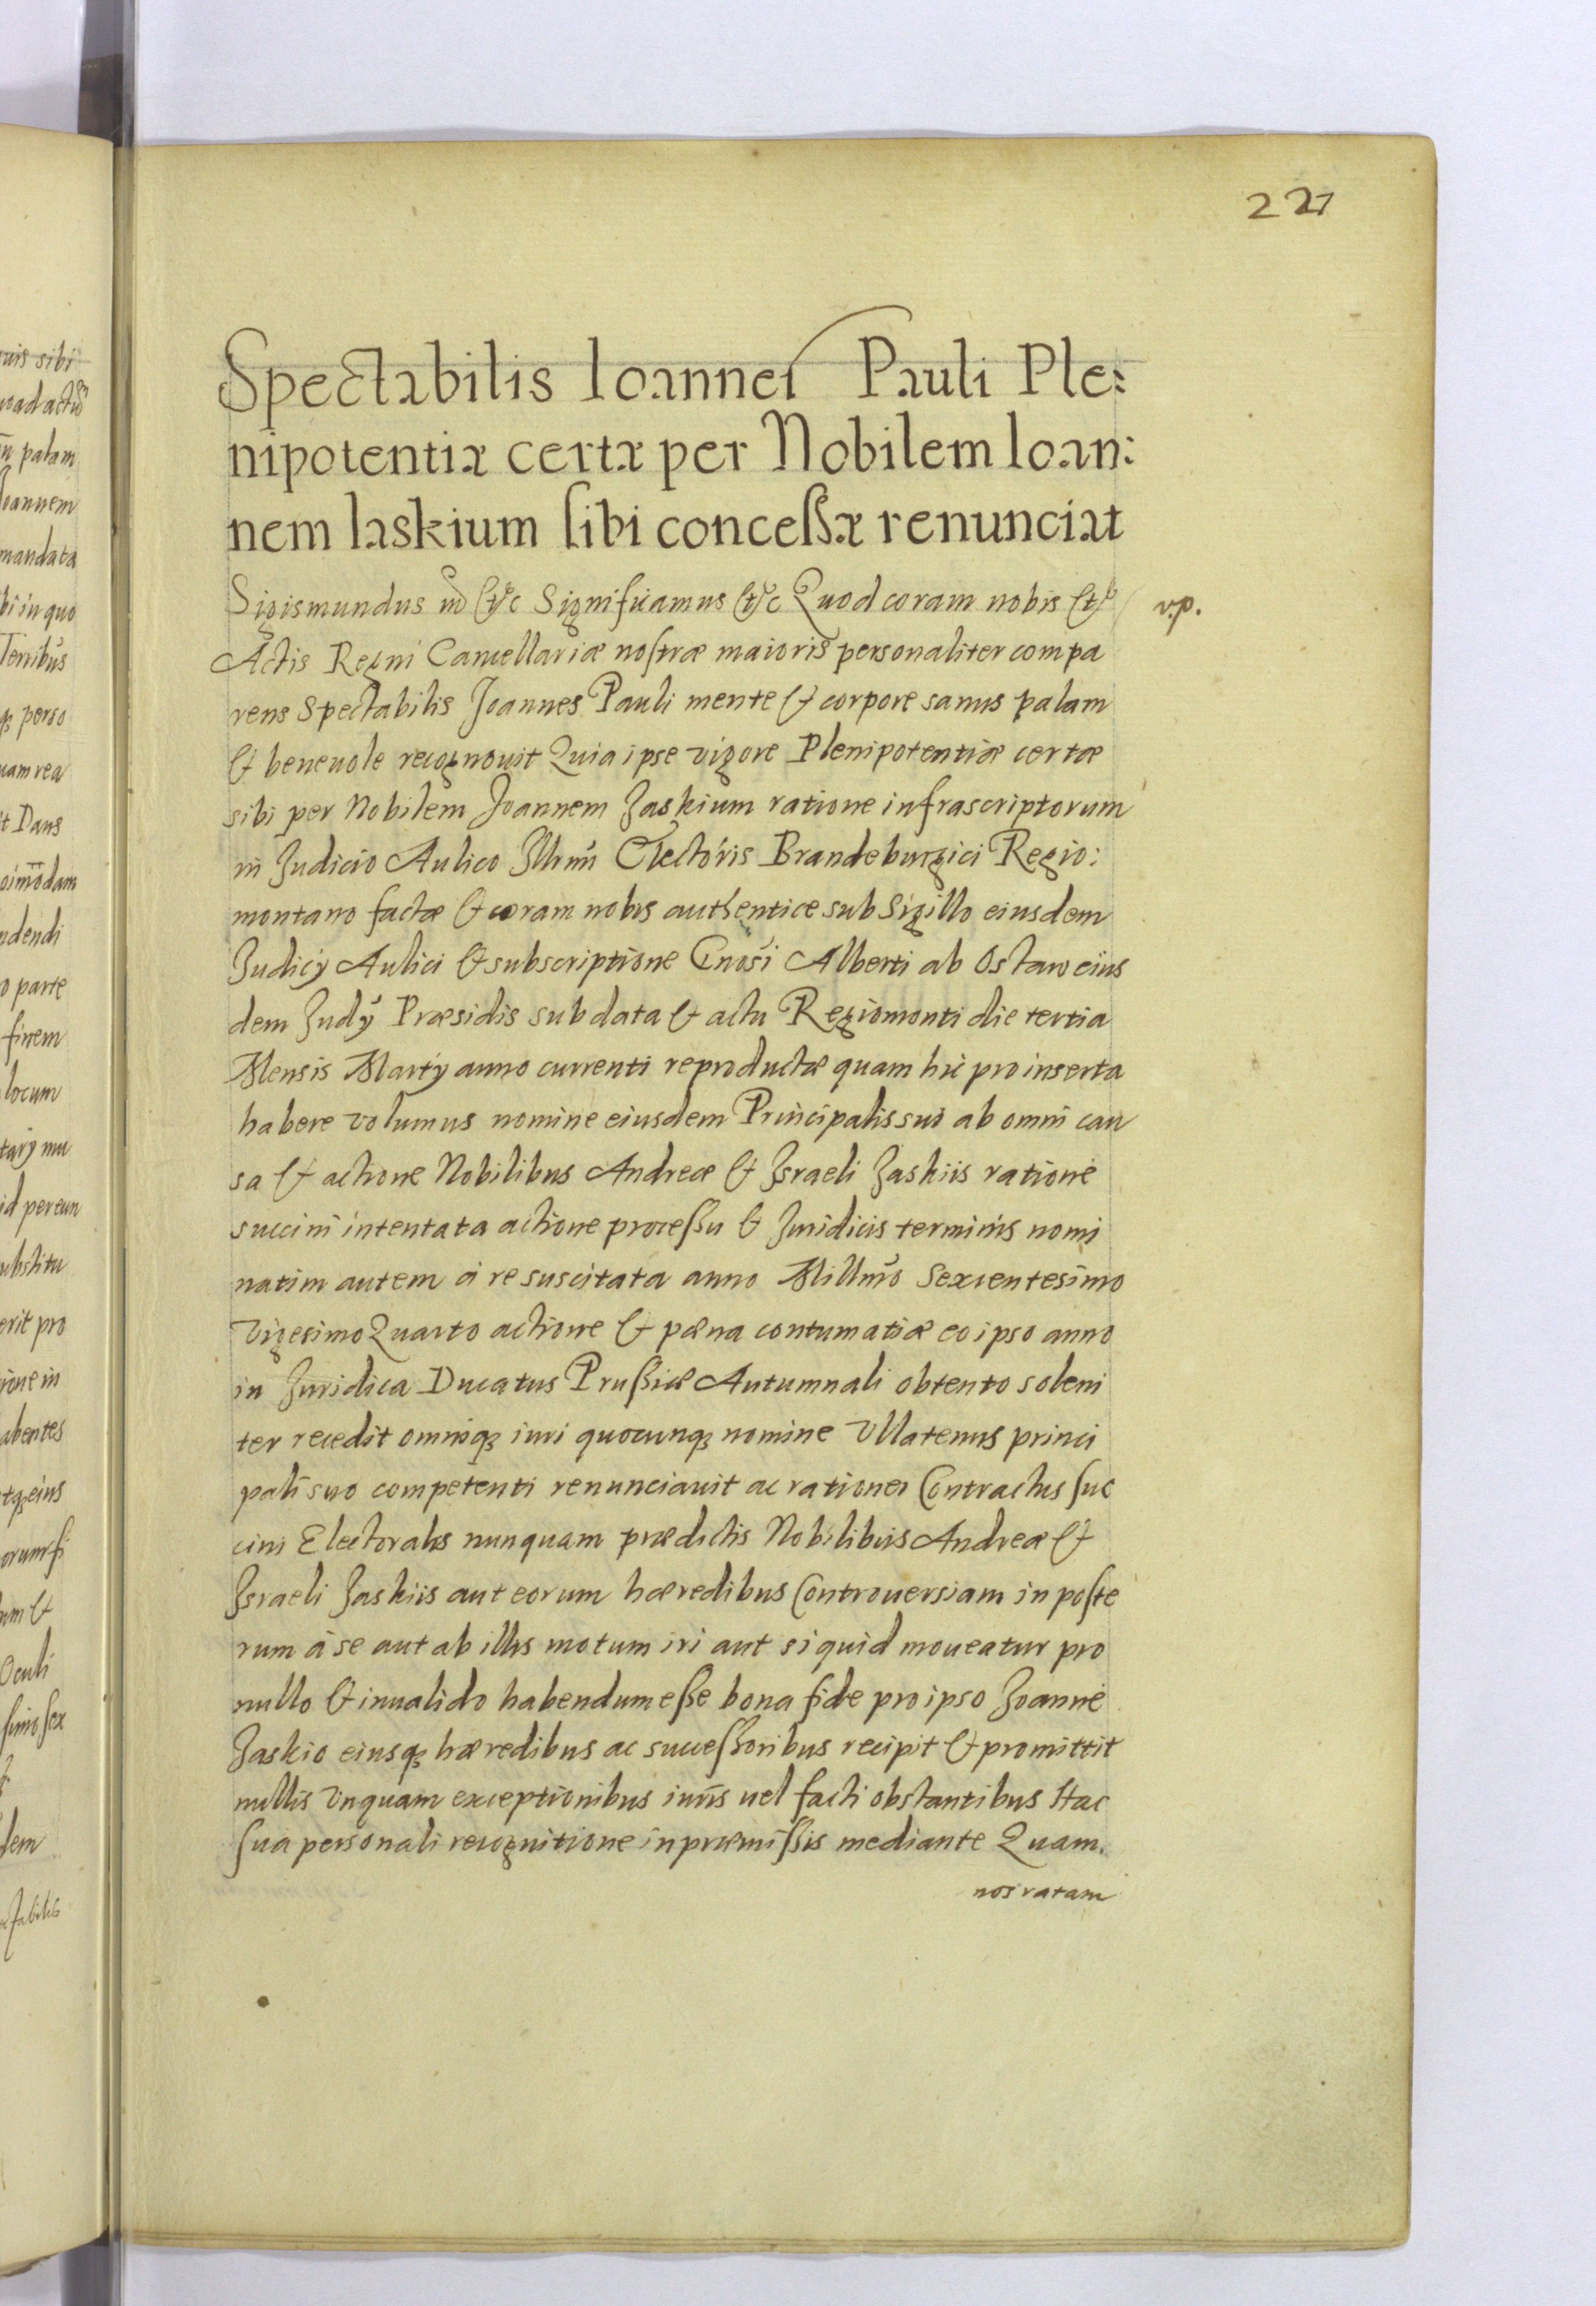 221
Spectabilis Ioannes Pauli Ple:
nipotentiæ certæ per Nobilem Ioan:
nem Iaskium sibi concessæ renunciat
Sigismundus &c Significamus &c Quod coram nobis et
v.p.
Actis Regni Cancellariæ nostræ maioris personaliter compa
rens Spectabilis Joannes Pauli mente et corpore sanus palam
et beneuole recognouit Quia ipse vigore Plenipotentiæ certæ
sibi per Nobilem Joannem Jaskium ratione infrascriptorum
in Judicio Aulico Illmi Electoris Brandeburgici Regio:
montano factæ et coram nobis authentice sub Sigillo eiusdem
Judicÿ Aulici et subscriptione Gnosi Alberti ab Ostaw eius
dem Judÿ Præsidis sub data et actu Regiomonti die tertia
Mensis Martÿ anno currenti reproductæ quam hic pro inserta
habere volumus nomine eiusdem Principalis sui ab omni cau
sa et actione Nobilibus Andreæ et Israeli Jaskiis ratione
succini intentata actione processu et Juridicis terminis nomi
natim autem à resuscitata anno Millmo Sexcentesimo
Vigesimo Quarto actione et pæna contumatiæ eo ipso anno
in Juridica Ducatus Prussiæ Autumnali obtento soleni
ter recedit omniqȝ iuri quocunqȝ nomine Vllatenus princi
pali suo competenti renunciauit ac rationes Contractus suc
cini Electoralis nunquam prædictis Nobilibus Andreæ et
Israeli Jaskiis aut eorum hæredibus Controuersiam in poste
rum à se aut ab illis motum iri aut si quid moueatur pro
nullo et inualido habendum esse bona fide pro ipso Joanne
Jaskio eiusqȝ hæredibus ac successoribus recipit et promittit
nullis Vnquam exceptionibus iuris uel facti obstantibus Hac
sua personali recognitione in præmissis mediante Quam.
nos ratam
uis sibi
palam
Joannem
mandata
bi in quo
qȝ perso
uam rea
t Daus
ndendi
o parte
finem
locum
id pereun
ubstitu
erit pro
ione in
abentes
tqȝ eius
orum si
um et
Oculi
simo sex
dem